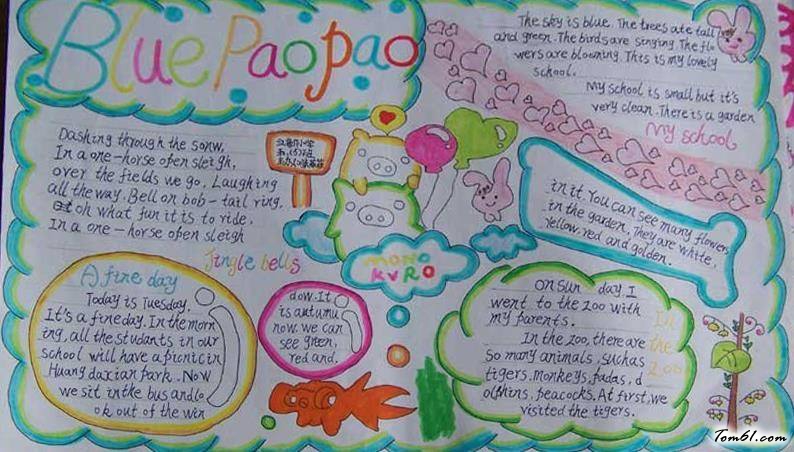 Blue Paopao
The sky is blue. The trees ate tall
and green. The birds are singing. The flo
wers are blooming. This is my lovely
school.
My school is small but it's
very clean. There is a garden
My school
in it. You can see many flowers
in the garden. They are white,
Yellow, red and golden.
Dashing through the sonw,
In a one-horse open sleigh,
over the fields we go, Laughing
all the way. Bell on bob-tail ring,
oh what fun it is to ride,
In a one-horse open sleigh
Jingle bells
moko
KvRo
A fine day
Today is Tuesday.
It's a fine day. In the morn
ing, all the studants in our
school will have a picnic in
Huang daxian park. Now
we sit in the bus and lo
ok out of the win
dow. It
is autumu
now. we can
see green,
red and.
on sun day. I
went to the zoo with
my parents.
In the zoo, there are
so many animals, suchas
tigers. monkeys, Padas, d
olphins, peacocks. At first, we
visited the tigers.
In
the
Zoo
Tom61.com